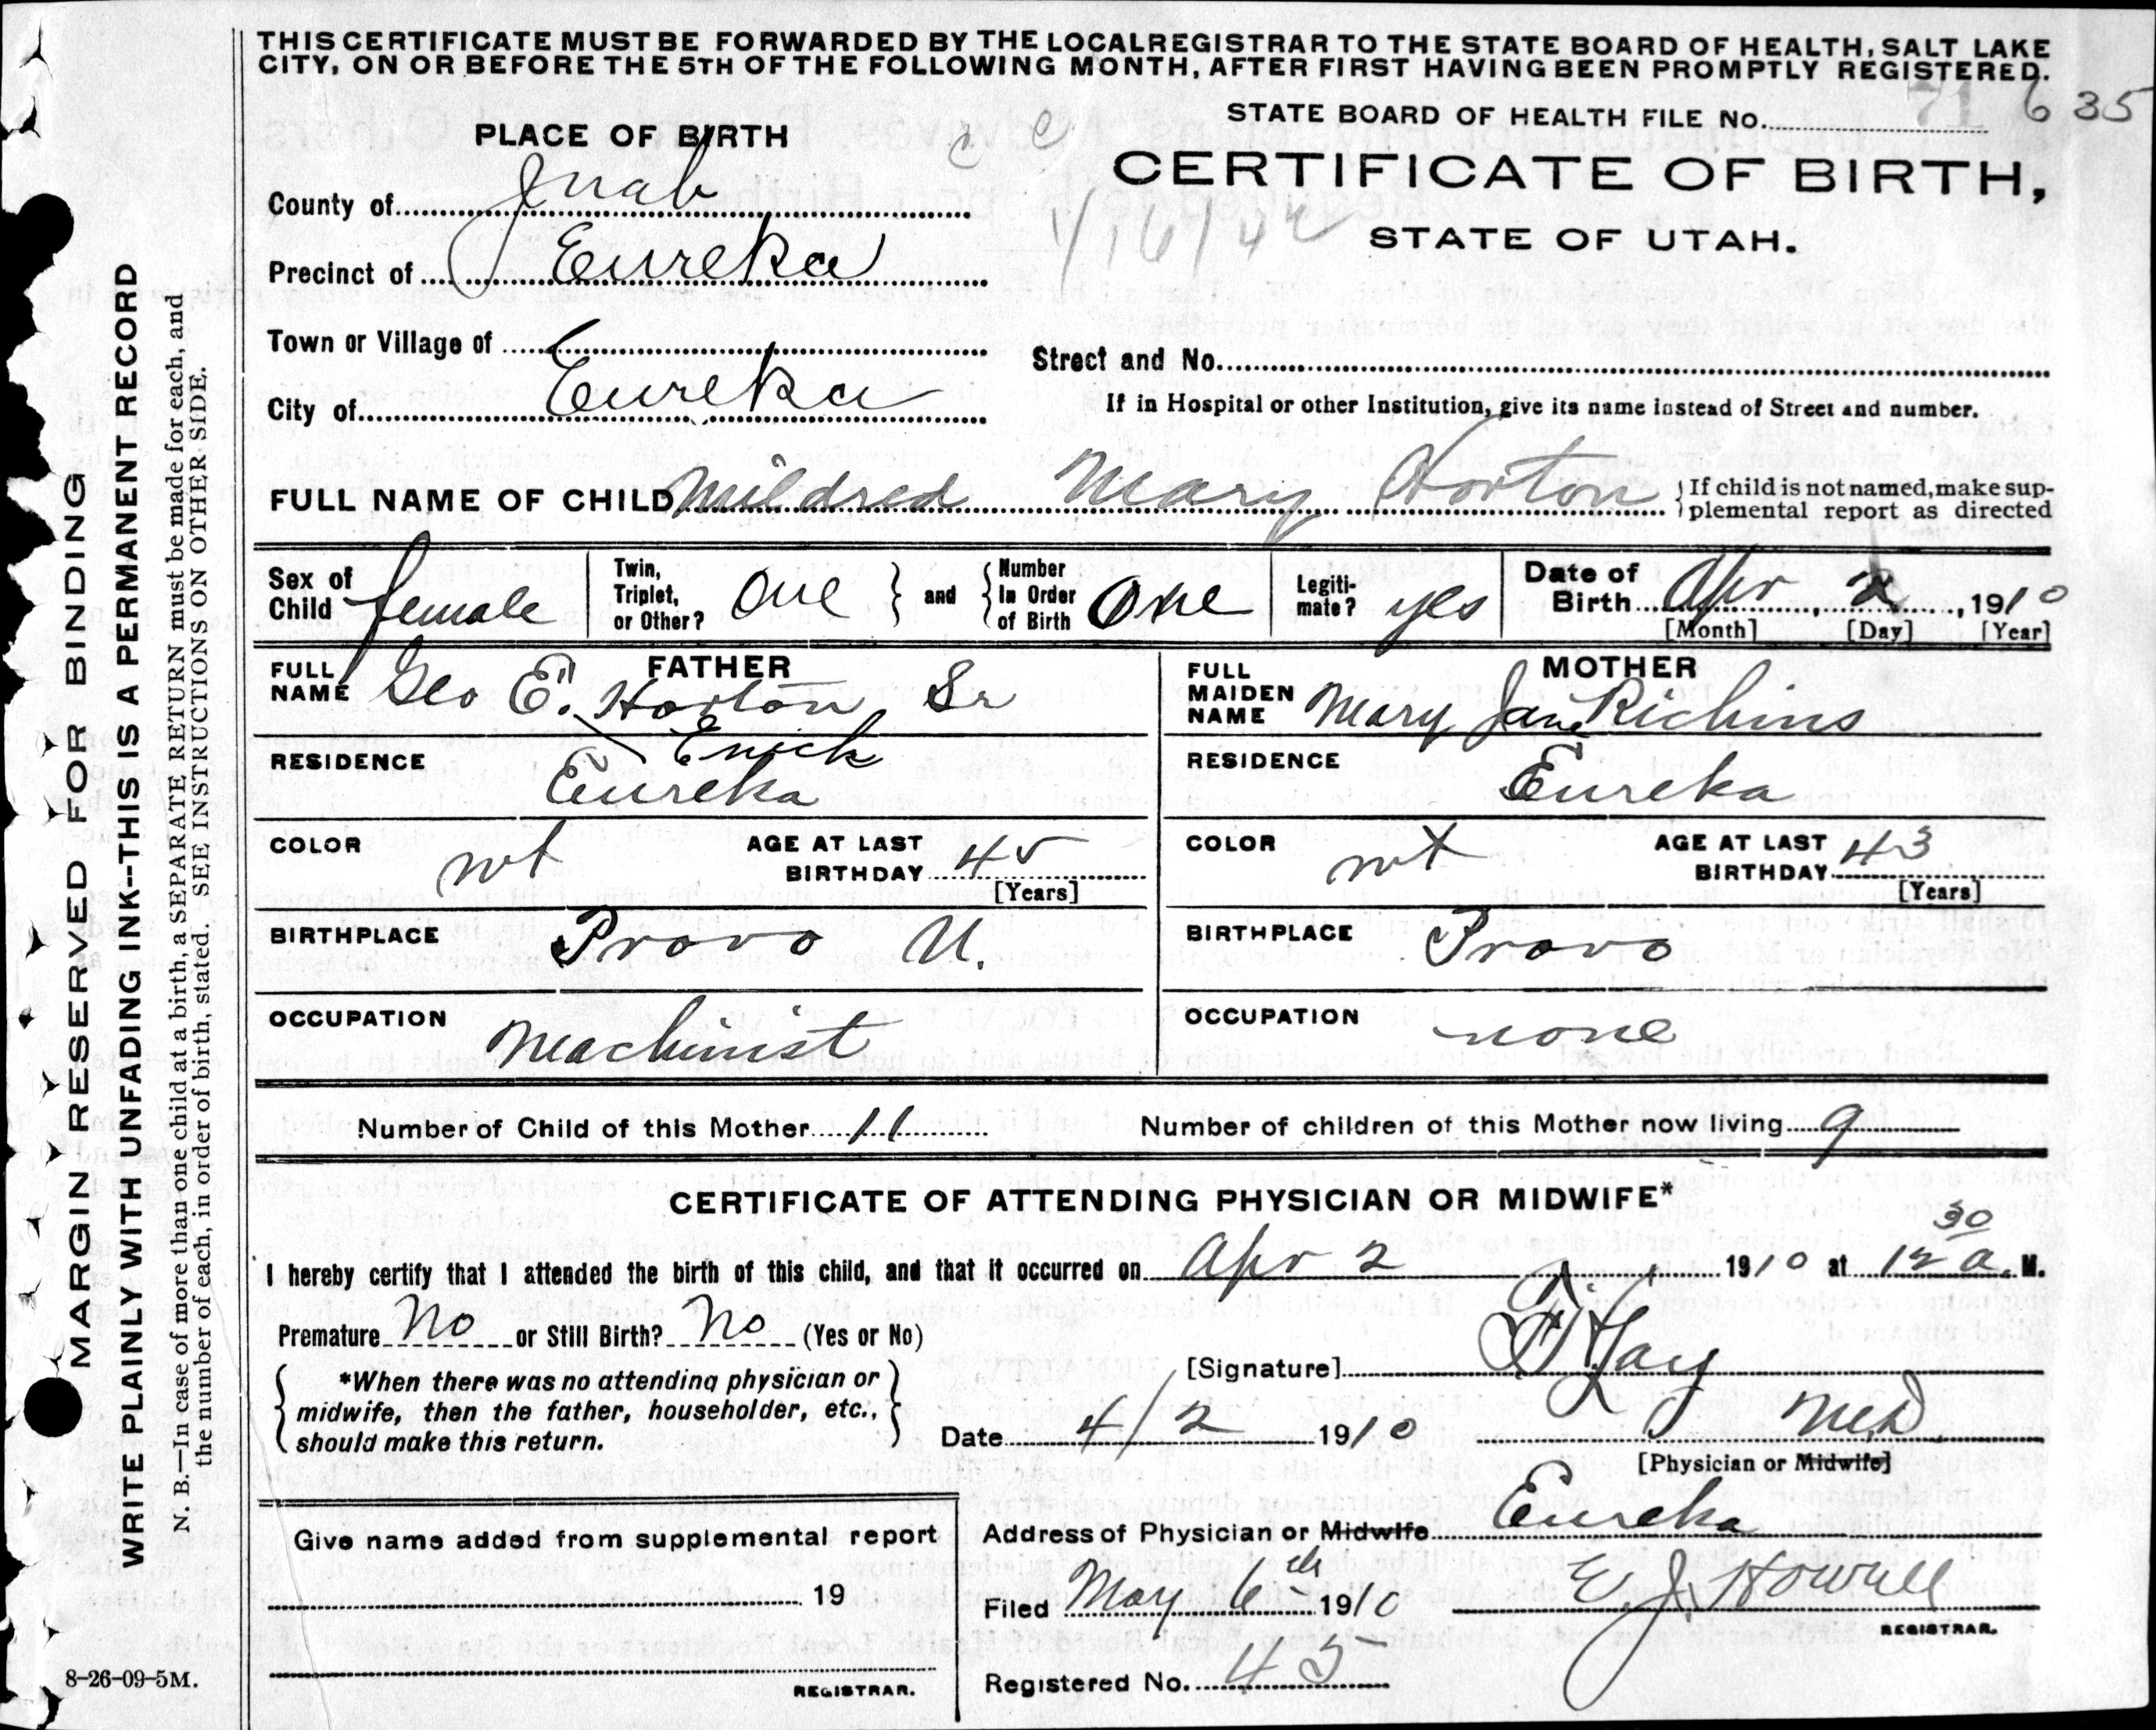 THIS CERTIFICATE MUST BE FORWARDED BY THE LOCAL REGISTRAR TO THE STATE BOARD OF HEALTH, SALT LAKE
CITY, ON OR BEFORE THE 5TH OF THE FOLLOWING MONTH, AFTER FIRST HAVING BEEN PROMPTLY REGISTERED.
STATE BOARD OF HEALTH FILE No. 71 635
PLACE OF BIRTH
CERTIFICATE OF BIRTH,
STATE OF UTAH.
County of Juab
Precinct of Eureka
Town or Village of
Street and No.
City of Eureka
If in Hospital or other Institution, give its name instead of Street and number.
FULL NAME OF CHILD Mildred Mary Horton
If child is not named, make sup-
plemental report as directed
Sex of Child female
Twin, Triplet, or Other? One and Number In Order of Birth One
Legiti-mate? yes
Date of Birth Apr 2, 1910
[Month] [Day] [Year]
FATHER
FULL NAME Geo E. Horton Sr
Erick
RESIDENCE Eureka
COLOR wt AGE AT LAST BIRTHDAY 45
[Years]
BIRTHPLACE Provo U.
OCCUPATION Machinist
MOTHER
FULL MAIDEN NAME Mary Jane Richins
RESIDENCE Eureka
COLOR wt AGE AT LAST BIRTHDAY 43
[Years]
BIRTHPLACE Provo
OCCUPATION none
Number of Child of this Mother 11 Number of children of this Mother now living 9
CERTIFICATE OF ATTENDING PHYSICIAN OR MIDWIFE*
I hereby certify that I attended the birth of this child, and that it occurred on Apr 2 1910 at 12 30 a. M.
Premature No or Still Birth? No (Yes or No)
[Signature]
*When there was no attending physician or
midwife, then the father, householder, etc.,
should make this return.
Date 4/2 1910
M.D.
[Physician or Midwife]
Address of Physician or Midwife Eureka
Give name added from supplemental report
19
REGISTRAR.
Filed May 6th 1910 E. J. Howell
REGISTRAR.
Registered No. 45
8-26-09-5M.
MARGIN RESERVED FOR BINDING
WRITE PLAINLY WITH UNFADING INK--THIS IS A PERMANENT RECORD
N. B.—In case of more than one child at a birth, a SEPARATE RETURN must be made for each, and
the number of each, in order of birth, stated. SEE INSTRUCTIONS ON OTHER SIDE.